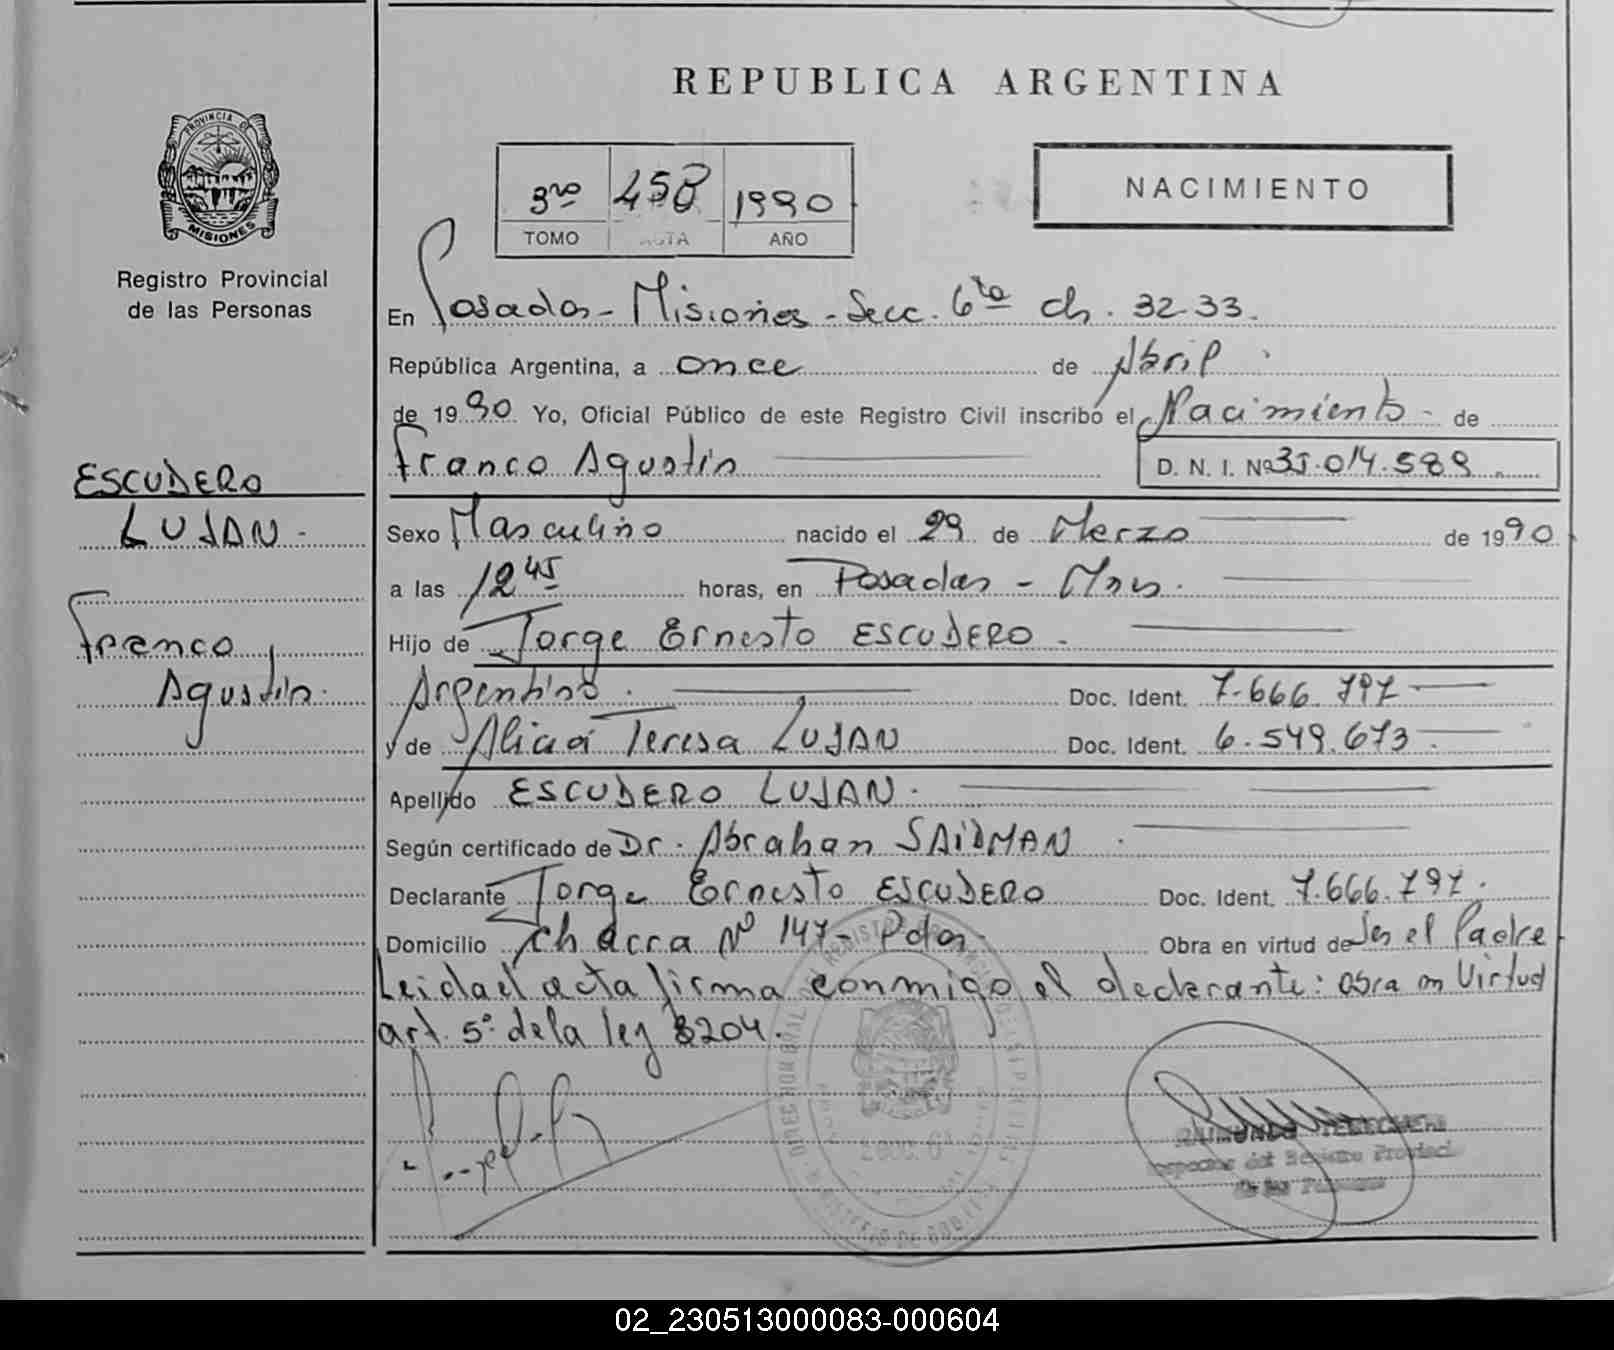 REPUBLICA ARGENTINA
PROVINCIA DE
MISIONES
Registro Provincial
de las Personas
3ro 458 1990
TOMO ACTA AÑO
NACIMIENTO
En Posadas - Misiones - Secc. 6ta ch. 32-33.
República Argentina, a once de Abril
de 1990 Yo, Oficial Público de este Registro Civil inscribo el Nacimiento - de
Franco Agustin
D. N. I. Nº 35.014.589
ESCUDERO
LUJAN -
Franco
Agustin.
Sexo Masculino nacido el 29 de Marzo de 1990
a las 12 45 horas, en Posadas - Mnes.
Hijo de Jorge Ernesto ESCUDERO -
Argentino. Doc. Ident. 7.666.797
y de Alicia Teresa LUJAN Doc. Ident. 6.549.673
Apellido ESCUDERO LUJAN.
Según certificado de Dr. Abrahan SAIDMAN
Declarante Jorge Ernesto ESCUDERO Doc. Ident. 7.666.797.
Domicilio chacra Nº 147 - Pdas Obra en virtud de Ser el Padre
Leida el acta firma conmigo el declarante: Obra en Virtud
art. 5º de la ley 8204.
RAIMUNDO
Inspector del Registro Provincial
de las Personas
02_230513000083-000604